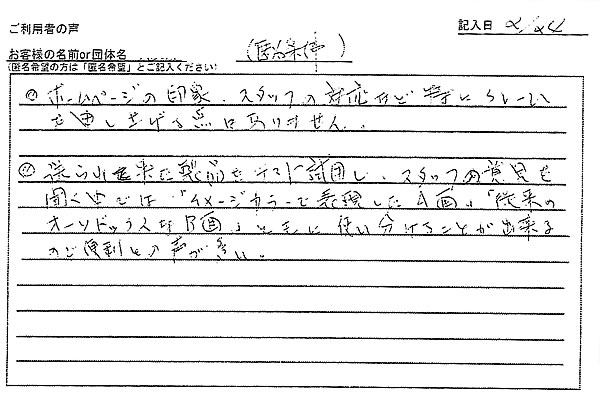 ご利用者の声
記入日 2/24
お客様の名前or団体名
(匿名希望)
(匿名希望の方は「匿名希望」とご記入ください)
ホームページの印象、スタッフの対応など特にクレーム
を申し上げる点はありません。
送られて来た製品をテスト試用し、スタッフの意見を
聞く中では「イメージカラーで表現したA面」「従来の
オーソドックスなB面」ともに使い分けることが出来る
ので便利との声が多い。